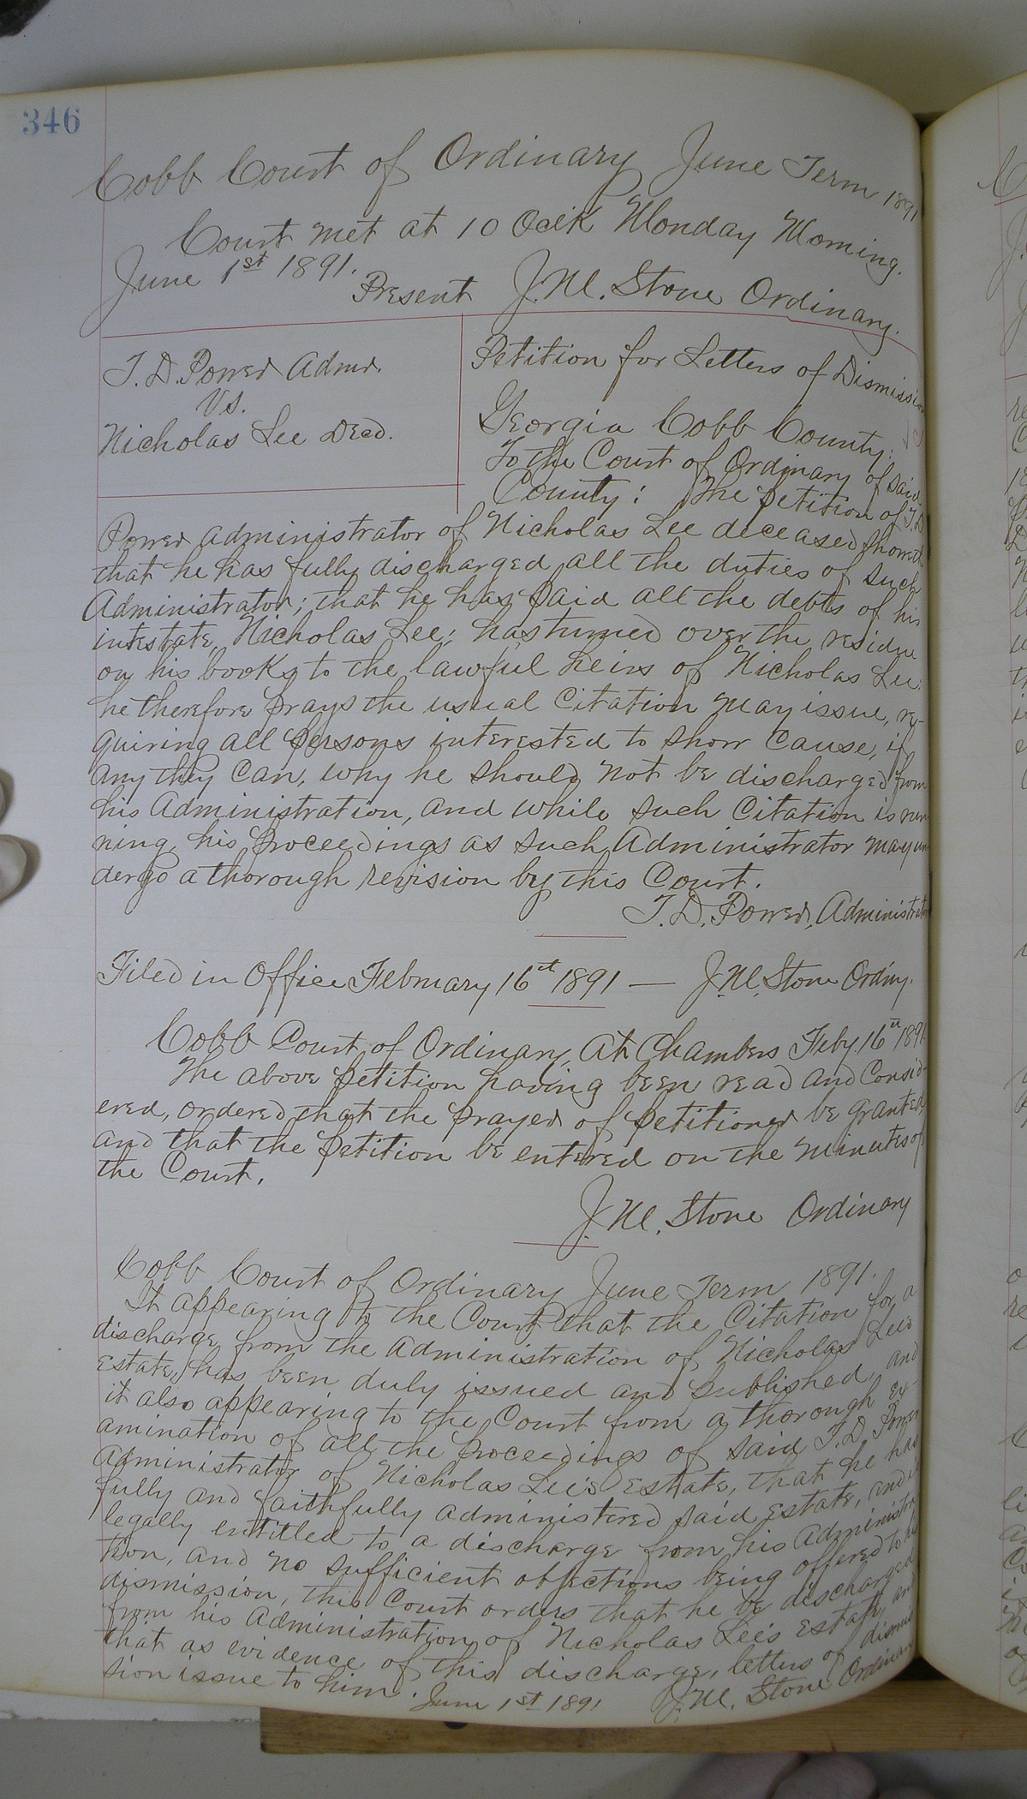 346
Cobb Court of Ordinary June Term 1891
Court met at 10 Oclk Monday Morning.
June 1st 1891.
Present J.M. Stone Ordinary.
T. D. Power Admr.
Vs.
Nicholas Lee Decd.
Petition for Letters of Dismissi
Georgia Cobb County.
To the Court of Ordinary of said
County: The petition of T.D.
Power administrator of Nicholas Lee deceased showeth
that he has fully discharged all the duties of such
Administrator; that he has paid all the debts of his
intestate, Nicholas Lee; has turned over the residue
on his books to the lawful heirs of Nicholas Lee.
he therefore prays the usual Citation may issue, re-
quiring all persons interested to show cause, if
any they can, why he should not be discharged from
his administration, and while such Citation is run
ning, his proceedings as such Administrator may un
dergo a thorough revision by this Court.
T. D. Power, Administrator
Filed in Office February 16st 1891 — J.M. Stone Ordiny.
Cobb Court of Ordinary, At Chambers Feby 16 1891
The above petition having been read and Consid-
ered, ordered that the prayer of petitioner be granted
and that the petition be entered on the minutes of
the Court.
J. M. Stone Ordinary
Cobb Court of Ordinary June Term 1891.
It appearing to the Court that the Citation for a
discharge from the administration of Nicholas Lee's
Estate, has been duly issued and published, and
it also appearing to the Court from a thorough ex-
amination of all the proceedings of said T. D. Power
Administrator of Nicholas Lee's Estate, that he has
fully and faithfully administered said Estate, and is
legally entitled to a discharge from his administra
tion, and no sufficient objections being offered to his
dismission, this Court orders that he be discharged
from his administration of Nicholas Lee's Estate, and
that as evidence of this discharge, letters of dismis
sion issue to him. June 1st 1891 J.M. Stone Ordinary